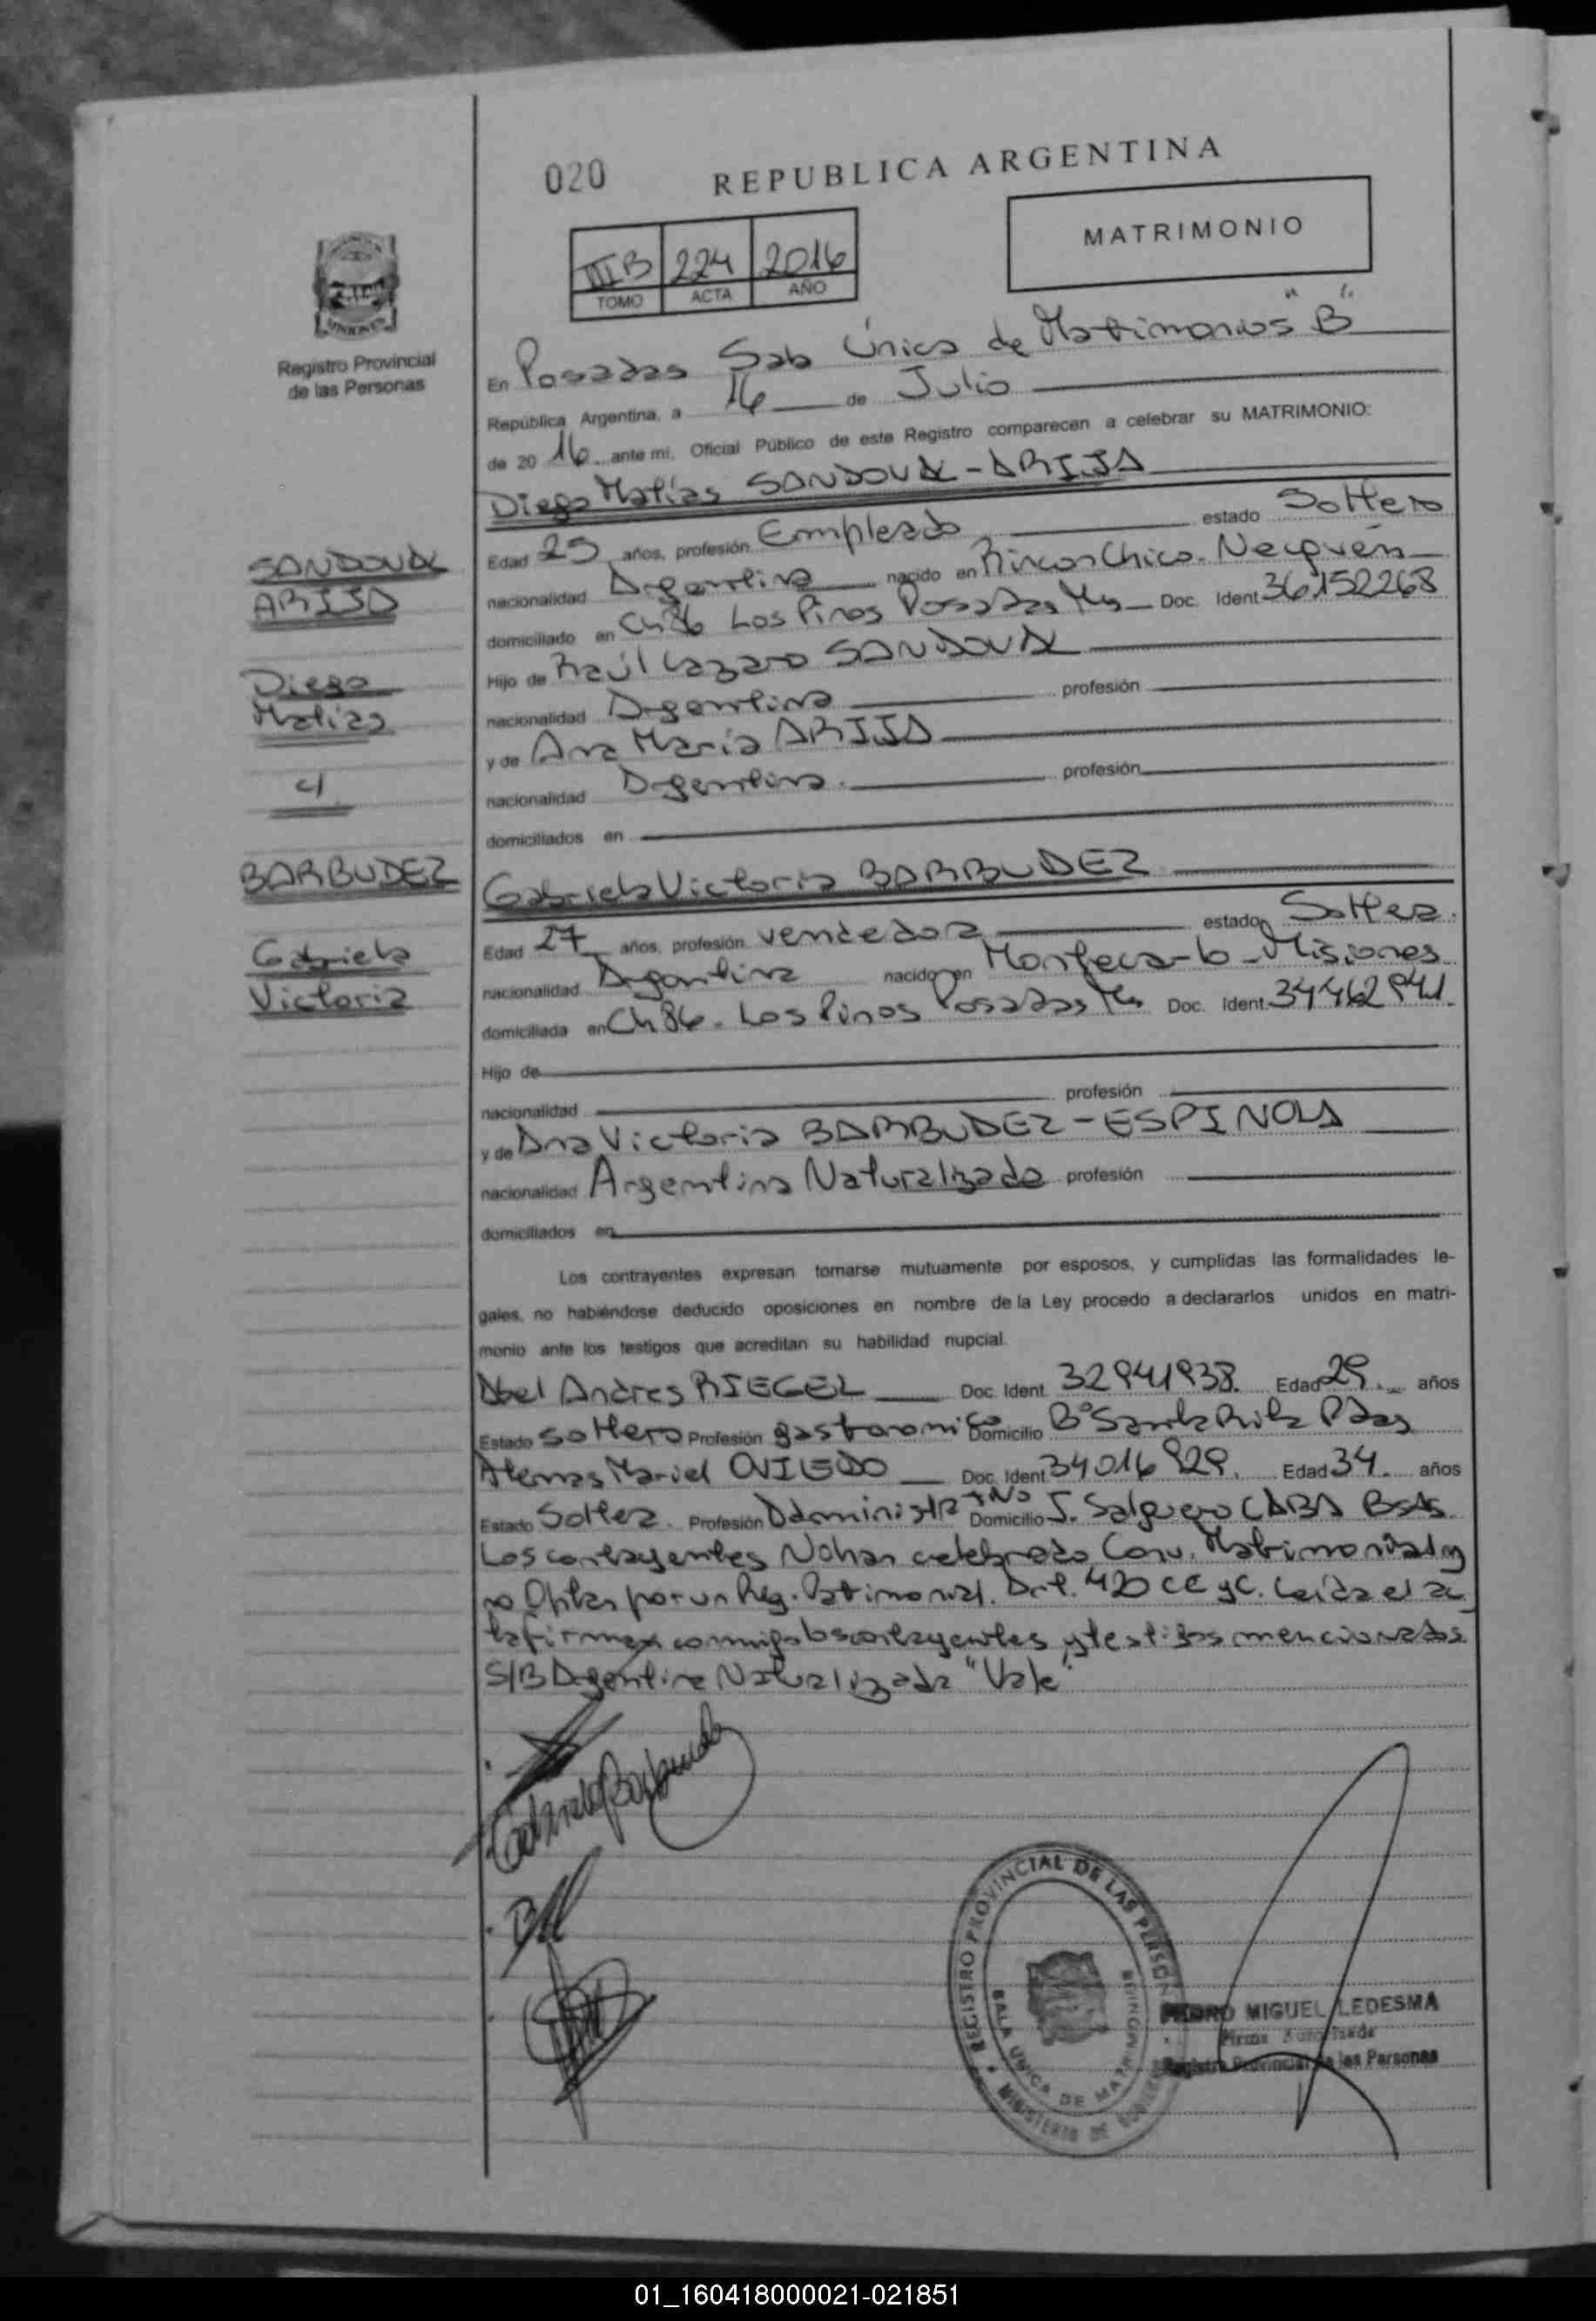 020
REPUBLICA ARGENTINA
MATRIMONIO
III B 224 2016
TOMO ACTA AÑO
MISIONES
Registro Provincial
de las Personas
En Posadas Sala Única de Matrimonios "B"
República Argentina, a 16 de Julio
de 2016 ante mi, Oficial Público de este Registro comparecen a celebrar su MATRIMONIO:
Diego Matías SANDOVAL - ARIJA
Edad 25 años, profesión Empleado estado Soltero
nacionalidad Argentina nacido en Rincon Chico - Neuquén
domiciliado en Ch 86 Los Pinos Posadas Ms Doc. Ident 36152268
Hijo de Raúl Lazaro SANDOVAL
nacionalidad Argentina profesión
y de Ana María ARIJA
nacionalidad Argentina. profesión
domiciliados en
SANDOVAL
ARIJA
Diego
Matías
c/
BARBUDEZ
Gabriela
Victoria
Gabriela Victoria BARBUDEZ
Edad 27 años, profesión vendedora estado Soltera.
nacionalidad Argentina nacido en Montecarlo - Misiones
domiciliada en Ch 86 - Los Pinos Posadas Ms Doc. Ident. 34462941.
Hijo de
nacionalidad profesión
y de Ana Victoria BARBUDEZ - ESPINOLA
nacionalidad Argentina Naturalizada profesión
domiciliados en
Los contrayentes expresan tomarse mutuamente por esposos, y cumplidas las formalidades le-
gales, no habiéndose deducido oposiciones en nombre de la Ley procedo a declararlos unidos en matri-
monio ante los testigos que acreditan su habilidad nupcial.
Abel Andres RIEGEL Doc. Ident. 32941938. Edad 29. años
Estado soltero Profesión gastronomico Domicilio B° Santa Rita Pdas
Mariel OVIEDO Doc. Ident 34016929. Edad 34. años
Estado Soltera. Profesión Administrativo Domicilio J. Salguero CABA BsAs.
Los contrayentes No han celebrado Conv. Matrimonial y
no Optan por un Reg. Patrimonial. Art. 420 CC y C. Leída el ac
ta firman conmigo los contrayentes y testigos mencionados
S/B Argentina Naturalizada "Vale"
Gabriela Barbudez
REGISTRO PROVINCIAL DE LAS PERSONAS
SALA UNICA DE MATRIMONIOS
MINISTERIO DE GOBIERNO
PEDRO MIGUEL LEDESMA
Firma Autorizada
Registro Provincial de las Personas
01_160418000021-021851